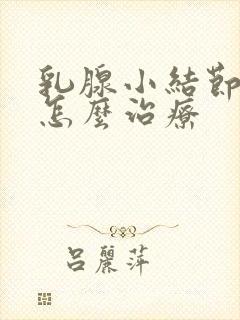 乳腺小結節
怎麼治療
呂麗萍